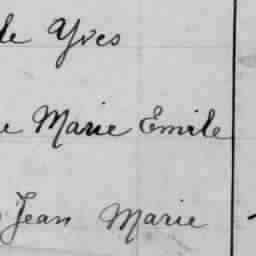 Yves
Marie Emile
Jean Marie